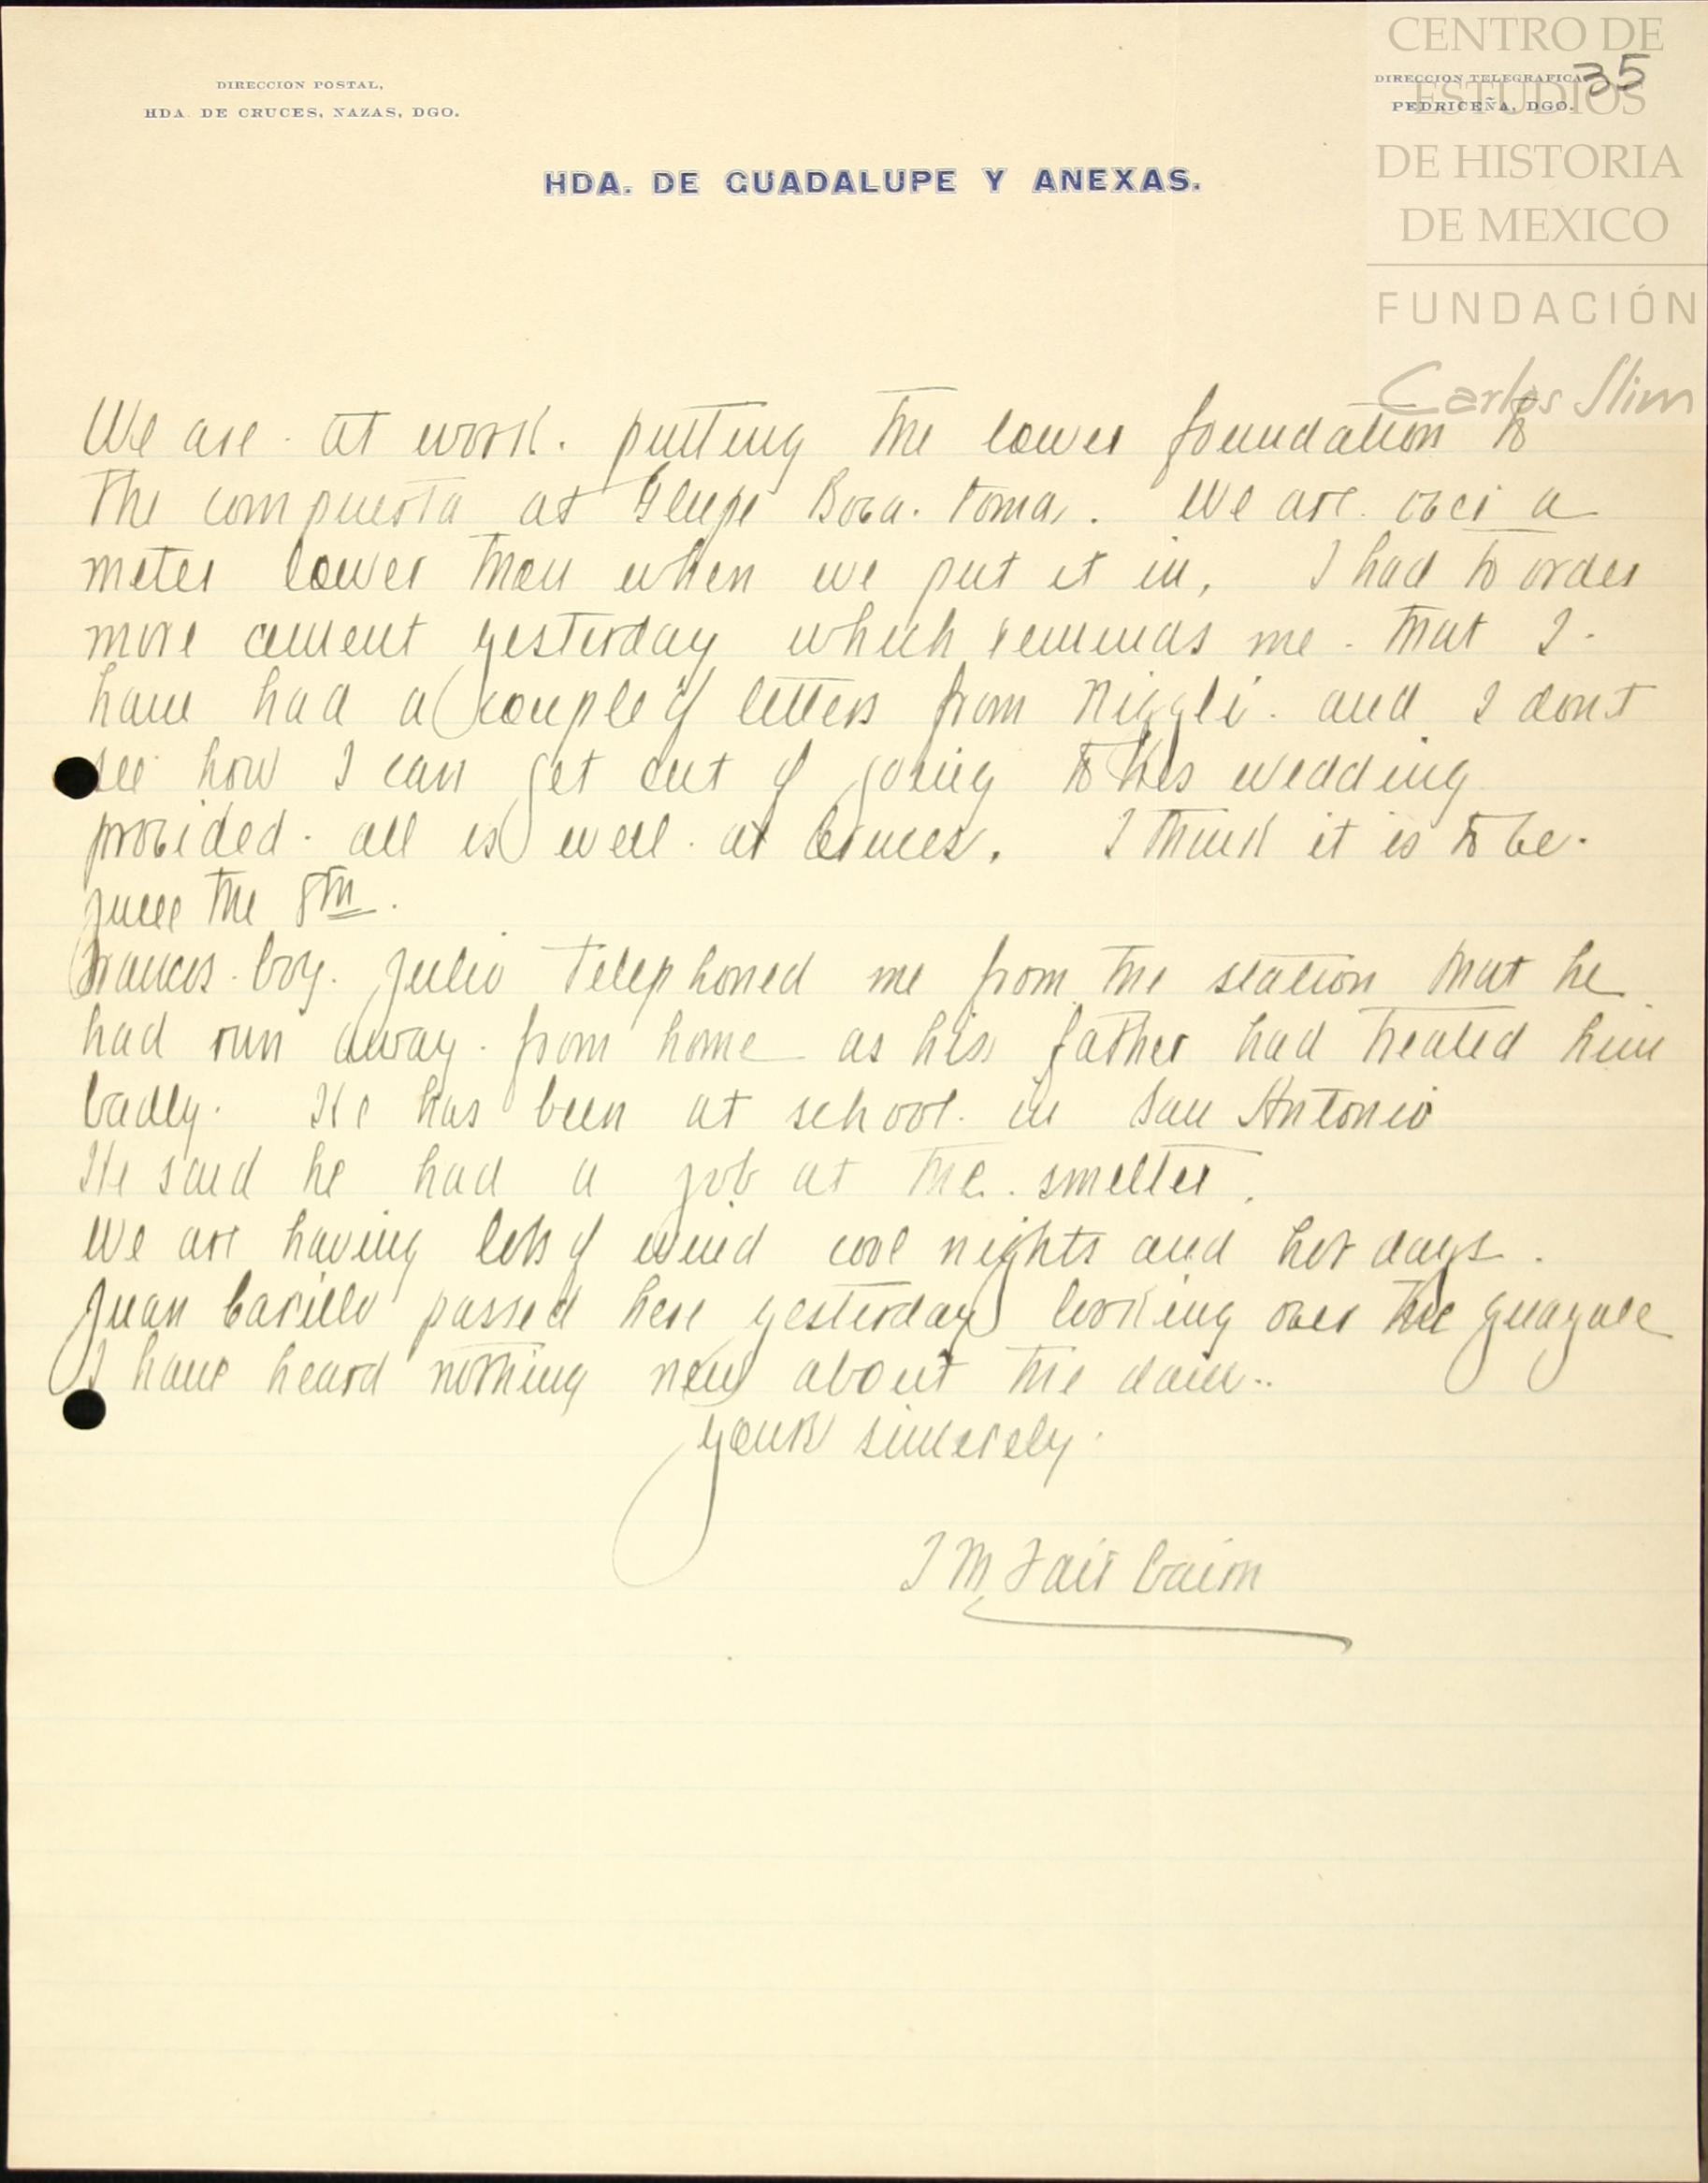 CENTRO DE
ESTUDIOS
DE HISTORIA
DE MEXICO
FUNDACIÓN
Carlos Slim
35
DIRECCION POSTAL,
HDA. DE CRUCES, NAZAS, DGO.
DIRECCION TELEGRAFICA
PEDRICEÑA, DGO.
HDA. DE GUADALUPE Y ANEXAS.
We are at work. putting the lower foundation to
the compuerta at Glupe Boca. toma. We are over a
meter lower than when we put it in, I had to order
more cement yesterday which reminds me. that I.
have had a couple of letters from Niggli. and I dont
see how I can get out of going to his wedding
provided. all is well. at Cruces. I think it is to be.
June the 8th.
boy. Julio telephoned me from the station that he
had run away. from home as his father had treated him
badly. He has been at school. in San Antonio
He said he had a job at the. smelter.
We are having lots of wind cool nights and hot days.
Juan Carillo passed here yesterday looking over the guayule
I have heard nothing new about the dam..
yours sincerely.
J M Fairbairn